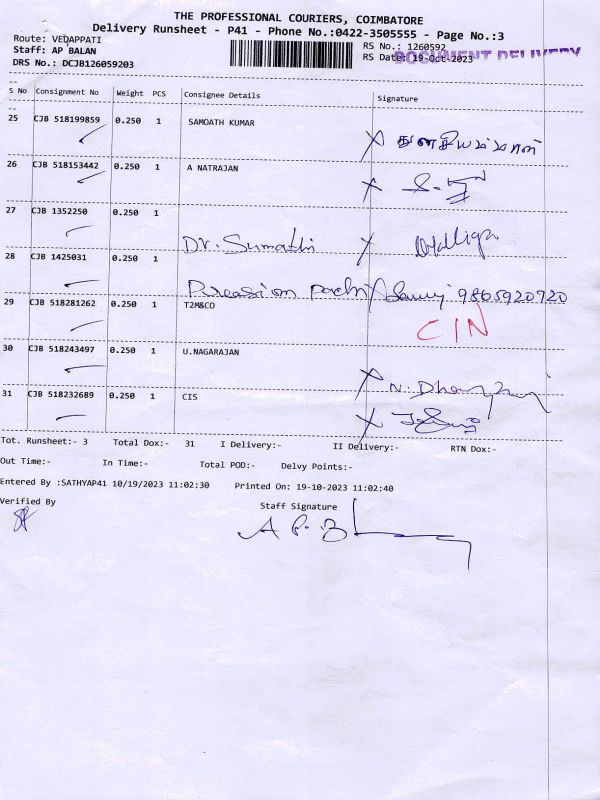 THE PROFESSIONAL COURIERS, COIMBATORE
Delivery Runsheet - P41 - Phone No.:0422-3505555 - Page No.:3
Route: VEDAPPATI RS No.: 1260592
Staff: AP BALAN RS Date: 19-Oct-2023 DOCUMENT DELIVERY
DRS No.: DCJB126059203
S No Consignment No Weight PCS Consignee Details Signature
25 CJB 518199859 0.250 1 SAMOATH KUMAR
X துளசியம்மாள்
26 CJB 518153442 0.250 1 A NATRAJAN
X
27 CJB 1352250 0.250 1
Dr. Sumathi X
28 CJB 1425031 0.250 1
X 9865920920
29 CJB 518281262 0.250 1 T2M&CO
CIN
30 CJB 518243497 0.250 1 U.NAGARAJAN
X N.
31 CJB 518232689 0.250 1 CIS
X
Tot. Runsheet:- 3 Total Dox:- 31 I Delivery:- II Delivery:- RTN Dox:-
Out Time:- In Time:- Total POD:- Delvy Points:-
Entered By :SATHYAP41 10/19/2023 11:02:30 Printed On: 19-10-2023 11:02:40
Verified By Staff Signature